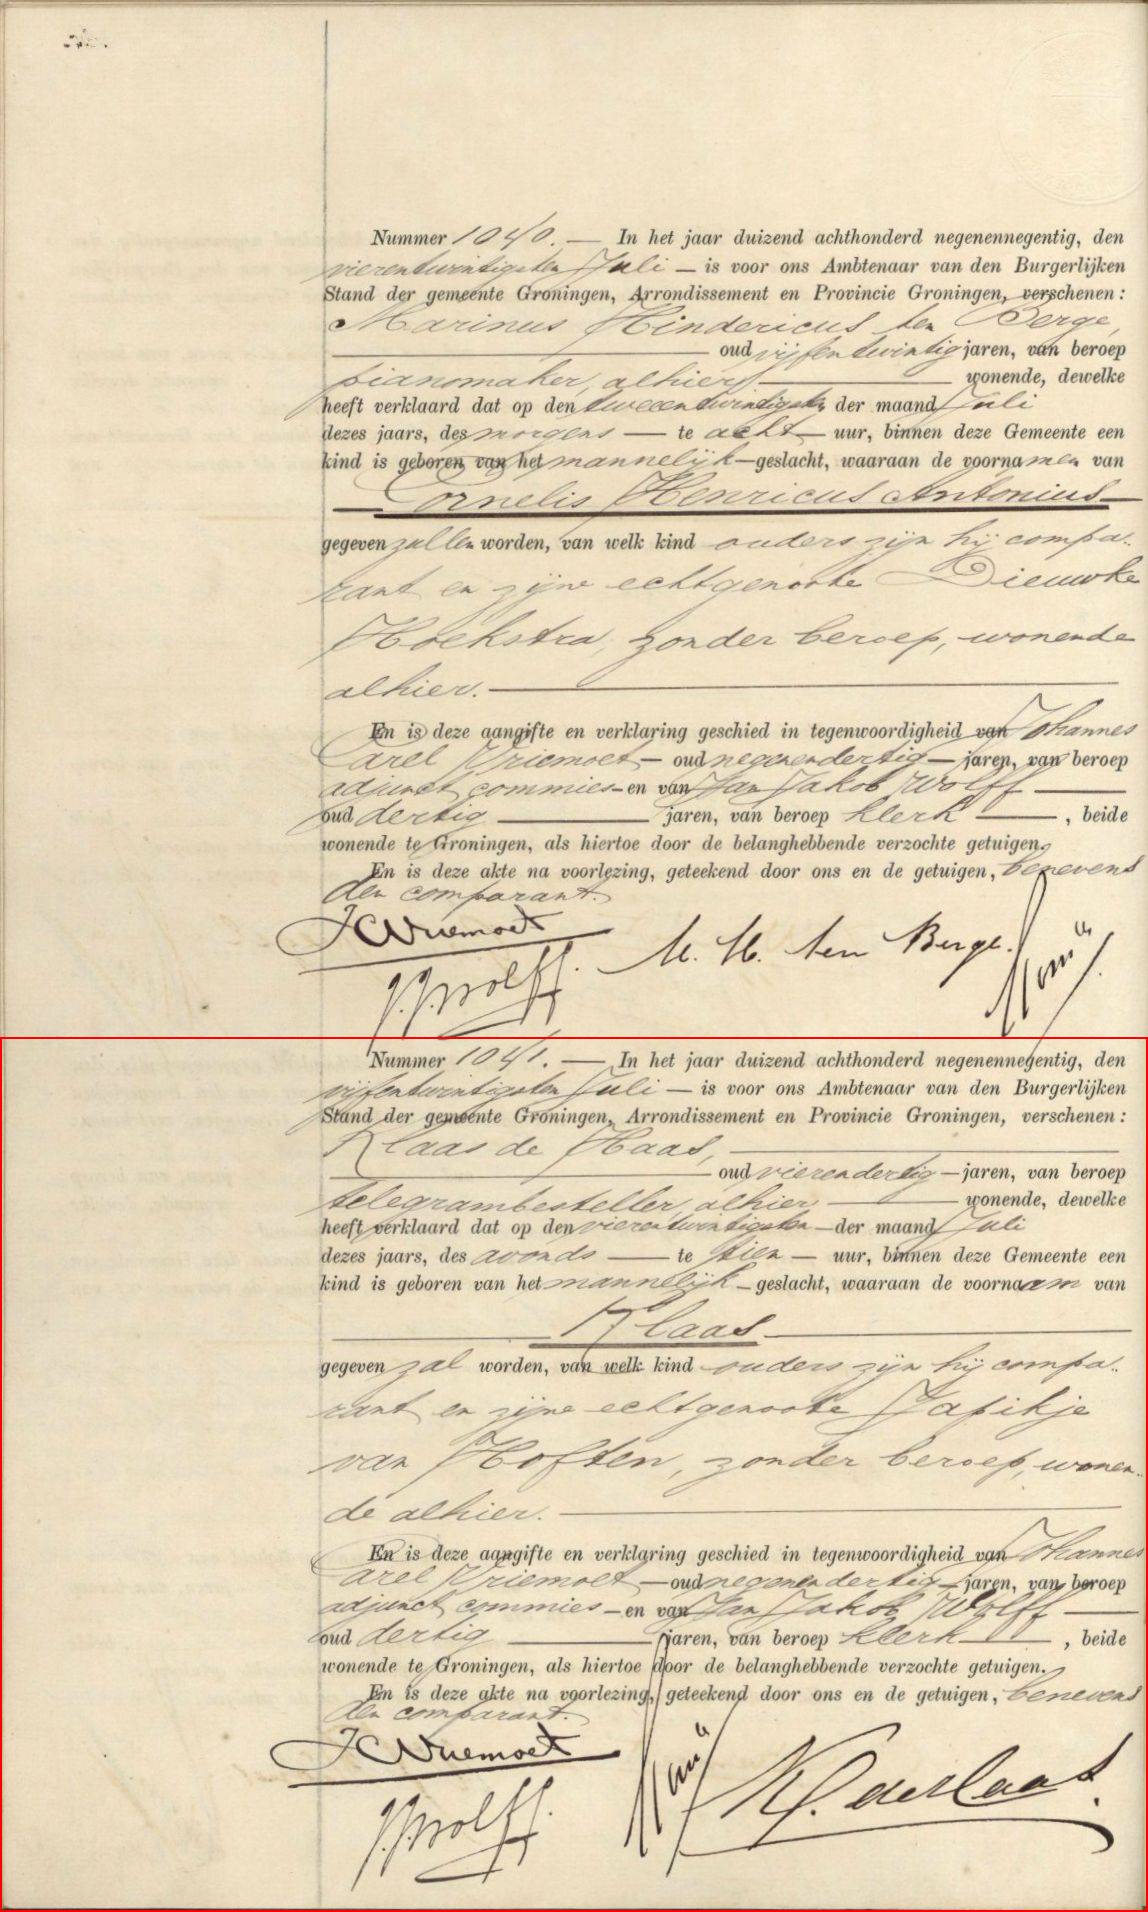 Nummer 1040. — In het jaar duizend achthonderd negenennegentig, den
vierentwintigsten Juli — is voor ons Ambtenaar van den Burgerlijken
Stand der gemeente Groningen, Arrondissement en Provincie Groningen, verschenen:
Marinus Hindericus ten Berge,
oud vijfentwintig jaren, van beroep
pianomaker, alhier — wonende, dewelke
heeft verklaard dat op den tweeentwintigsten der maand Juli
dezes jaars, des morgens — te acht — uur, binnen deze Gemeente een
kind is geboren van het mannelijk — geslacht, waaraan de voornamen van
— Cornelis Henricus Antonius —
gegeven zullen worden, van welk kind ouders zijn hij compa-
rant en zijne echtgenoote Dieuwke
Hoekstra, zonder beroep, wonende
alhier. —
En is deze aangifte en verklaring geschied in tegenwoordigheid van Johannes
Carel Vriemoet — oud negenendertig — jaren, van beroep
adjunct commies — en van Jan Jakob Wolff —
oud dertig — jaren, van beroep klerk —, beide
wonende te Groningen, als hiertoe door de belanghebbende verzochte getuigen.
En is deze akte na voorlezing, geteekend door ons en de getuigen, benevens
den comparant.
JCVriemoet
M. H. ten Berge.
J.J. Wolff.
Nummer 1041. — In het jaar duizend achthonderd negenennegentig, den
vijfentwintigsten Juli — is voor ons Ambtenaar van den Burgerlijken
Stand der gemeente Groningen, Arrondissement en Provincie Groningen, verschenen:
Klaas de Haas, —
— oud vierendertig — jaren, van beroep
telegrambesteller, alhier — wonende, dewelke
heeft verklaard dat op den vierentwintigsten — der maand Juli
dezes jaars, des avonds — te tien — uur, binnen deze Gemeente een
kind is geboren van het mannelijk — geslacht, waaraan de voornaam van
— Klaas —
gegeven zal worden, van welk kind ouders zijn hij compa-
rant en zijne echtgenoote Jafikje
van Hoften, zonder beroep, wonen-
de alhier. —
En is deze aangifte en verklaring geschied in tegenwoordigheid van Johannes
Carel Vriemoet — oud negenendertig — jaren, van beroep
adjunct commies — en van Jan Jakob Wolff —
oud dertig — jaren, van beroep klerk —, beide
wonende te Groningen, als hiertoe door de belanghebbende verzochte getuigen.
En is deze akte na voorlezing, geteekend door ons en de getuigen, benevens
den comparant.
JCVriemoet
K. de Haas.
J.J. Wolff.